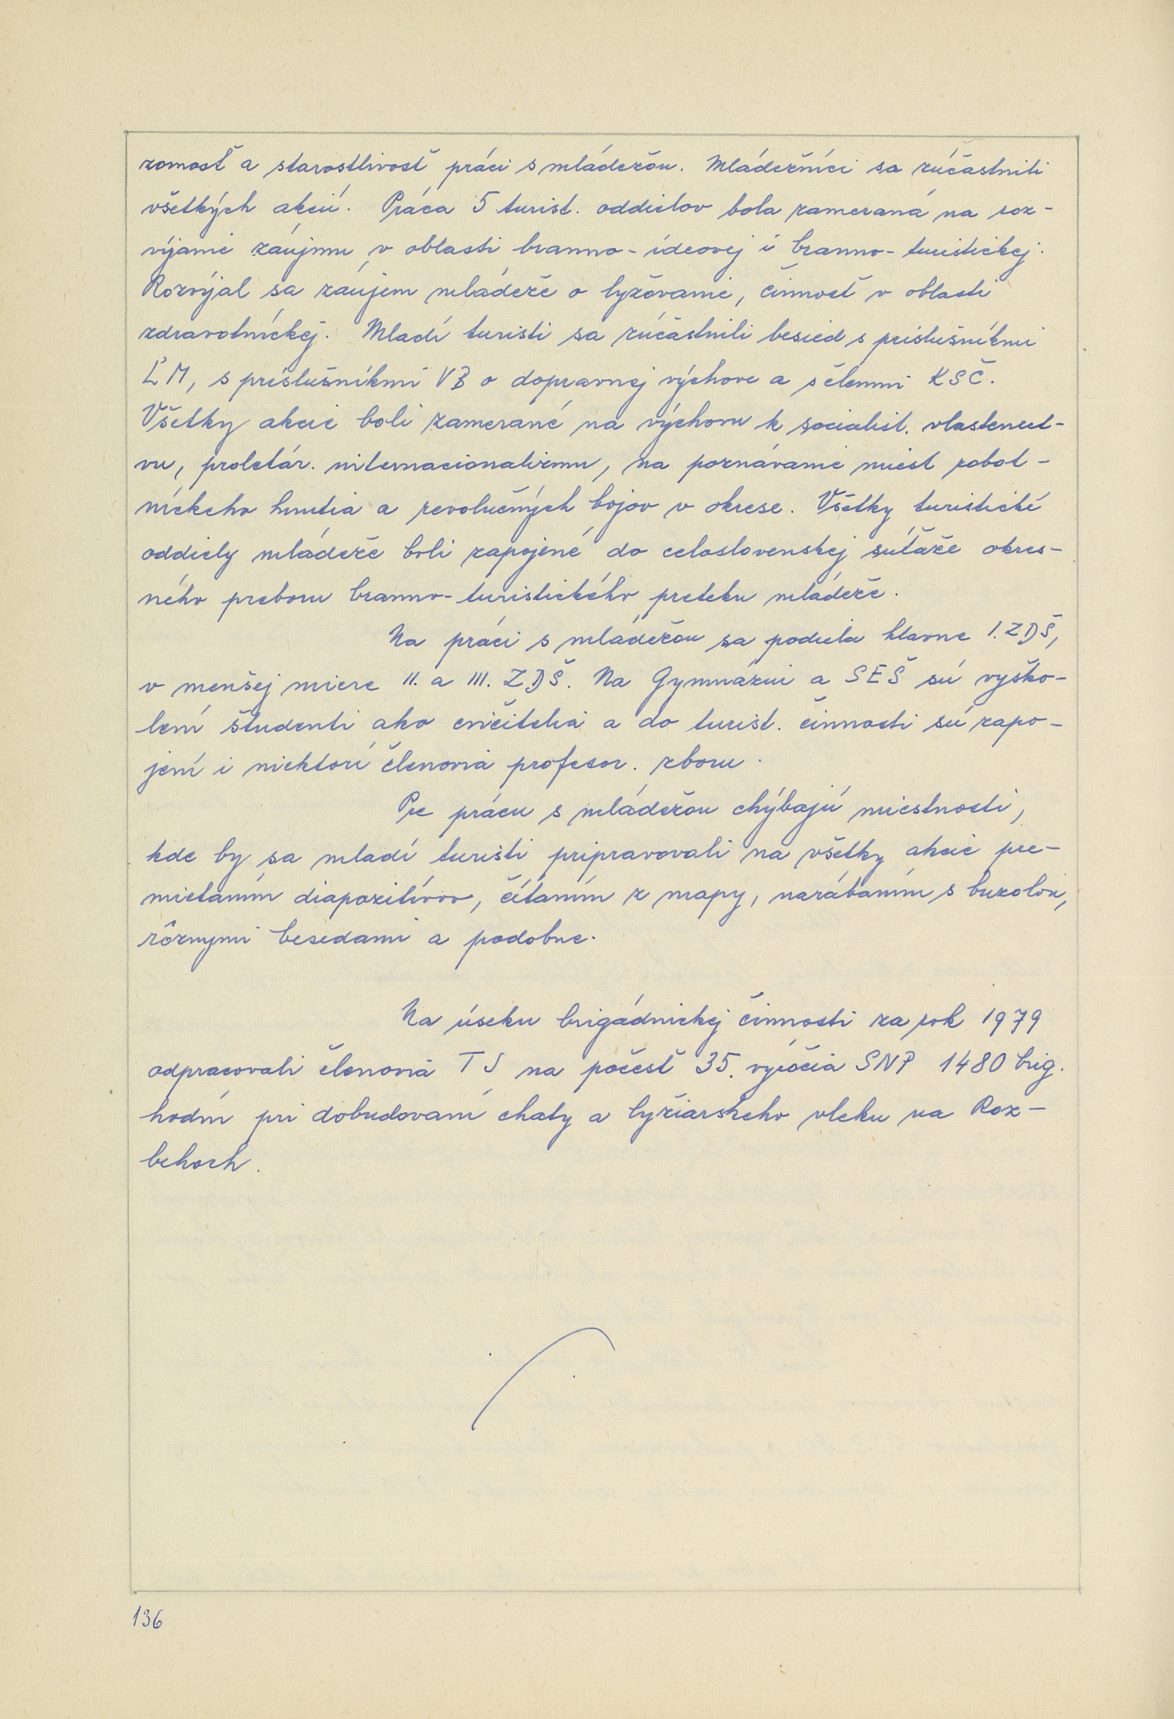 zornosť a starostlivosť práci s mládežou. Mládežníci sa zúčastnili
všetkých akcií. Práca 5 turist. oddielov bola zameraná na roz-
víjanie záujmu v oblasti branno-ideovej i branno-turistickej.
Rozvýjal sa záujem mládeže o lyžovanie, činnosť v oblasti
zdravotníckej. Mladí turisti sa zúčastnili besied s príslušníkmi
ĽM, s príslušníkmi VB o dopravnej výchove a s členmi KSČ.
Všetky akcie boli zamerané na výchovu k socialist. vlastenect-
vu, proletár. internacionalizmu, na poznávanie miest robot-
níckeho hnutia a revolučných bojov v okrese. Všetky turistické
oddiely mládeže boli zapojené do celoslovenskej súťaže okres-
ného preboru branno-turistického preteku mládeže.
Na práci s mládežou sa podieľa hlavne I. ZDŠ,
v menšej miere II. a III. ZDŠ. Na Gymnáziu a SEŠ sú vyško-
lení študenti ako cvičitelia a do turist. činnosti sú zapo-
jení i niektorí členovia profesor. zboru.
Pre prácu s mládežou chýbajú miestnosti,
kde by sa mladí turisti pripravovali na všetky akcie pre-
mietaním diapozitívov, čítaním z mapy, narábaním s buzolou,
rôznymi besedami a podobne.
Na úseku brigádnickej činnosti za rok 1979
odpracovali členovia TJ na počesť 35. výročia SNP 1480 brig.
hodín pri dobudovaní chaty a lyžiarskeho vleku na Roz-
behoch.
136